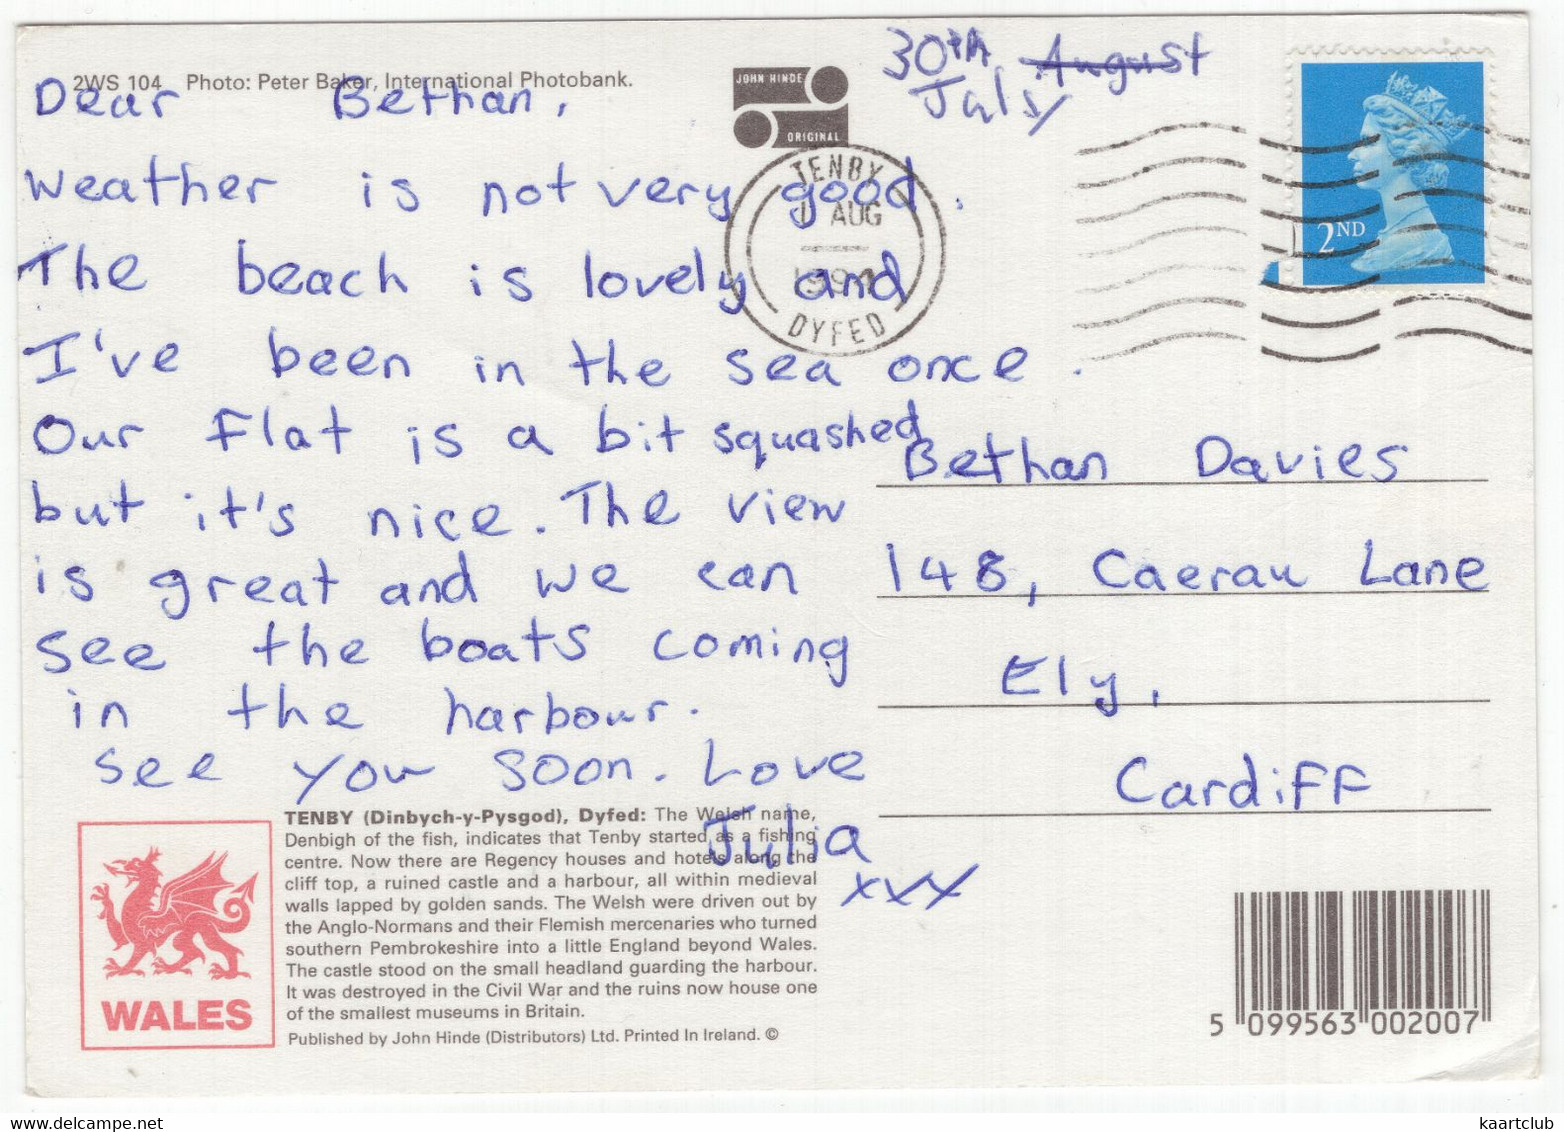 2WS 104 Photo: Peter Baker, International Photobank.
JOHN HINDE
ORIGINAL
30th August
July
2ND
TENBY
1 AUG
DYFED
Dear Bethan,
weather is not very good.
The beach is lovely and
I've been in the sea once.
Our flat is a bit squashed
but it's nice. The view
is great and we can
see the boats coming
in the harbour.
See you soon. Love
Julia
xxx
Bethan Davies
148, Caerau Lane
Ely,
Cardiff
WALES
TENBY (Dinbych-y-Pysgod), Dyfed: The Welsh name,
Denbigh of the fish, indicates that Tenby started as a fishing
centre. Now there are Regency houses and hotels along the
cliff top, a ruined castle and a harbour, all within medieval
walls lapped by golden sands. The Welsh were driven out by
the Anglo-Normans and their Flemish mercenaries who turned
southern Pembrokeshire into a little England beyond Wales.
The castle stood on the small headland guarding the harbour.
It was destroyed in the Civil War and the ruins now house one
of the smallest museums in Britain.
Published by John Hinde (Distributors) Ltd. Printed In Ireland. ©
5 099563 002007
kaartclub
www.delcampe.net